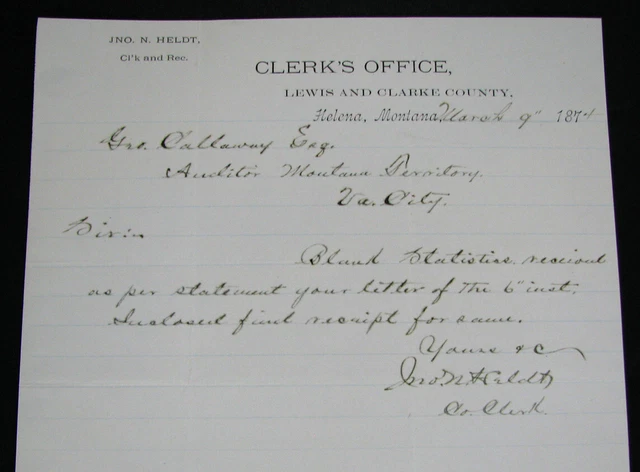 JNO. N. HELDT,
Cl'k and Rec.
CLERK'S OFFICE,
LEWIS AND CLARKE COUNTY,
Helena, Montana, March 9" 1874
Geo. Callaway Esq.
Auditor Montana Territory.
Va. City.
Sir:
Blank Statistics received
as per statement your letter of the 6" inst.
Inclosed find receipt for same.
Yours &c
Jno N Heldt
Co. Clerk.